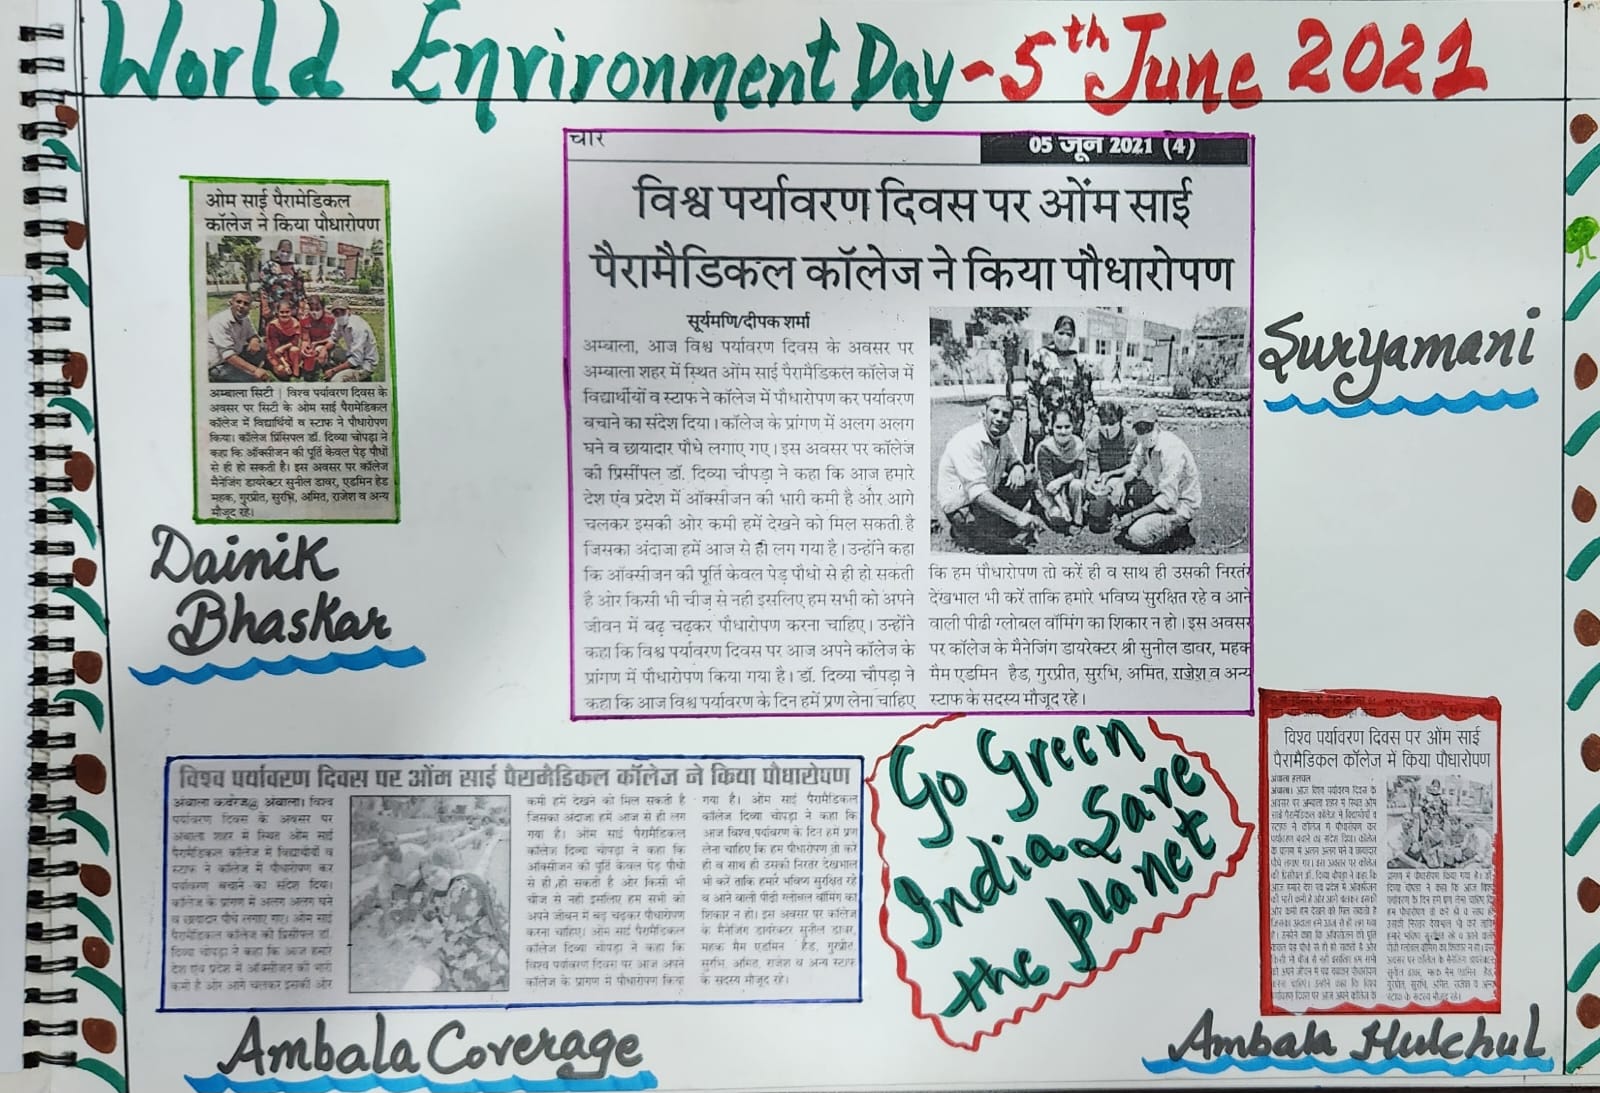 World Environment Day - 5th June 2021
चार
05 जून 2021 (4)
विश्व पर्यावरण दिवस पर ओंम साई
पैरामैडिकल कॉलेज ने किया पौधारोपण
सूर्यमणि/दीपक शर्मा
अम्बाला, आज विश्व पर्यावरण दिवस के अवसर पर
अम्बाला शहर में स्थित ओंम साई पैरामैडिकल कॉलेज में
विद्यार्थीयों व स्टाफ ने कॉलेज में पौधारोपण कर पर्यावरण
बचाने का संदेश दिया। कॉलेज के प्रांगण में अलग अलग
घने व छायादार पौधे लगाए गए। इस अवसर पर कॉलेज
की प्रिसींपल डॉ. दिव्या चौपड़ा ने कहा कि आज हमारे
देश एंव प्रदेश में ऑक्सीजन की भारी कमी है और आगे
चलकर इसकी ओर कमी हमें देखने को मिल सकती है
जिसका अंदाजा हमें आज से ही लग गया है। उन्होंने कहा
कि ऑक्सीजन की पूर्ति केवल पेड़ पौधो से ही हो सकती
है ओर किसी भी चीज से नही इसलिए हम सभी को अपने
जीवन में बढ़ चढ़कर पौधारोपण करना चाहिए। उन्होंने
कहा कि विश्व पर्यावरण दिवस पर आज अपने कॉलेज के
प्रांगण में पौधारोपण किया गया है। डॉ. दिव्या चौपड़ा ने
कहा कि आज विश्व पर्यावरण के दिन हमें प्रण लेना चाहिए
कि हम पौधारोपण तो करें ही व साथ ही उसकी निरतंर
देखभाल भी करें ताकि हमारे भविष्य सुरक्षित रहे व आने
वाली पीढी ग्लोबल वॉमिंग का शिकार न हो। इस अवसर
पर कॉलेज के मैनेजिंग डायरेक्टर श्री सुनील डावर, महक
मैम एडमिन हैड, गुरप्रीत, सुरभि, अमित, राजेश व अन्य
स्टाफ के सदस्य मौजूद रहे।
Suryamani
ओम साई पैरामेडिकल
कॉलेज ने किया पौधारोपण
अम्बाला सिटी | विश्व पर्यावरण दिवस के
अवसर पर सिटी के ओम साई पैरामेडिकल
कॉलेज में विद्यार्थियों व स्टाफ ने पौधारोपण
किया। कॉलेज प्रिंसिपल डॉ. दिव्या चोपड़ा ने
कहा कि ऑक्सीजन की पूर्ति केवल पेड़ पौधों
से ही हो सकती है। इस अवसर पर कॉलेज
मैनेजिंग डायरेक्टर सुनील डावर, एडमिन हेड
महक, गुरप्रीत, सुरभि, अमित, राजेश व अन्य
मौजूद रहे।
Dainik
Bhaskar
विश्व पर्यावरण दिवस पर ओंम साई पैरामैडिकल कॉलेज ने किया पौधारोपण
अंबाला कवरेज@ अंबाला। विश्व
पर्यावरण दिवस के अवसर पर
अंबाला शहर में स्थित ओंम साई
पैरामैडिकल कॉलेज में विद्यार्थीयों व
स्टाफ ने कॉलेज में पौधारोपण कर
पर्यावरण बचाने का संदेश दिया।
कॉलेज के प्रांगण में अलग अलग घने
व छायादार पौधे लगाए गए। ओंम साई
पैरामैडिकल कॉलेज की प्रिसींपल डॉ.
दिव्या चौपड़ा ने कहा कि आज हमारे
देश एंव प्रदेश में ऑक्सीजन की भारी
कमी है और आगे चलकर इसकी ओर
कमी हमें देखने को मिल सकती है
जिसका अंदाजा हमें आज से ही लग
गया है। ओंम साई पैरामैडिकल
कॉलेज दिव्या चौपड़ा ने कहा कि
ऑक्सीजन की पूर्ति केवल पेड़ पौधो
से ही हो सकती है ओर किसी भी
चीज से नही इसलिए हम सभी को
अपने जीवन में बढ़ चढ़कर पौधारोपण
करना चाहिए। ओंम साई पैरामैडिकल
कॉलेज दिव्या चौपड़ा ने कहा कि
विश्व पर्यावरण दिवस पर आज अपने
कॉलेज के प्रांगण में पौधारोपण किया
गया है। ओंम साई पैरामैडिकल
कॉलेज दिव्या चौपड़ा ने कहा कि
आज विश्व पर्यावरण के दिन हमें प्रण
लेना चाहिए कि हम पौधारोपण तो करें
ही व साथ ही उसकी निरतंर देखभाल
भी करें ताकि हमारे भविष्य सुरक्षित रहे
व आने वाली पीढी ग्लोबल वॉमिंग का
शिकार न हो। इस अवसर पर कॉलेज
के मैनेजिंग डायरेक्टर सुनील डावर,
महक मैम एडमिन हैड, गुरप्रीत,
सुरभि, अमित, राजेश व अन्य स्टाफ
के सदस्य मौजूद रहे।
Ambala Coverage
Go Green
India Save
the planet
विश्व पर्यावरण दिवस पर ओंम साई
पैरामैडिकल कॉलेज में किया पौधारोपण
अंबाला हलचल
Ambala Hulchul